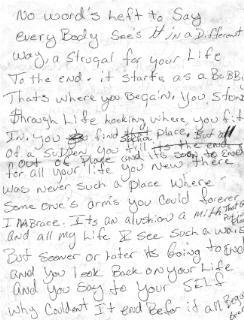 No word's Left to Say
every Body see's It in a Different
way. a Strugal for your Life
To the end. it starts as a BaBBi
That's where you Begain. You Stand
through Life looking where you fit
In. you find place. But all
of a Sudden you fill
a out of place and its soon to End
for all your life you New there
was never such a place where
Some one's arms you Could forever
ImBrace. Its an alushion a mith That's
and all my Life I see Such a
But Sooner or later its Going to End
and you Look Back on your Life
and you Say to your SELF
why Couldn't It end Befor it all